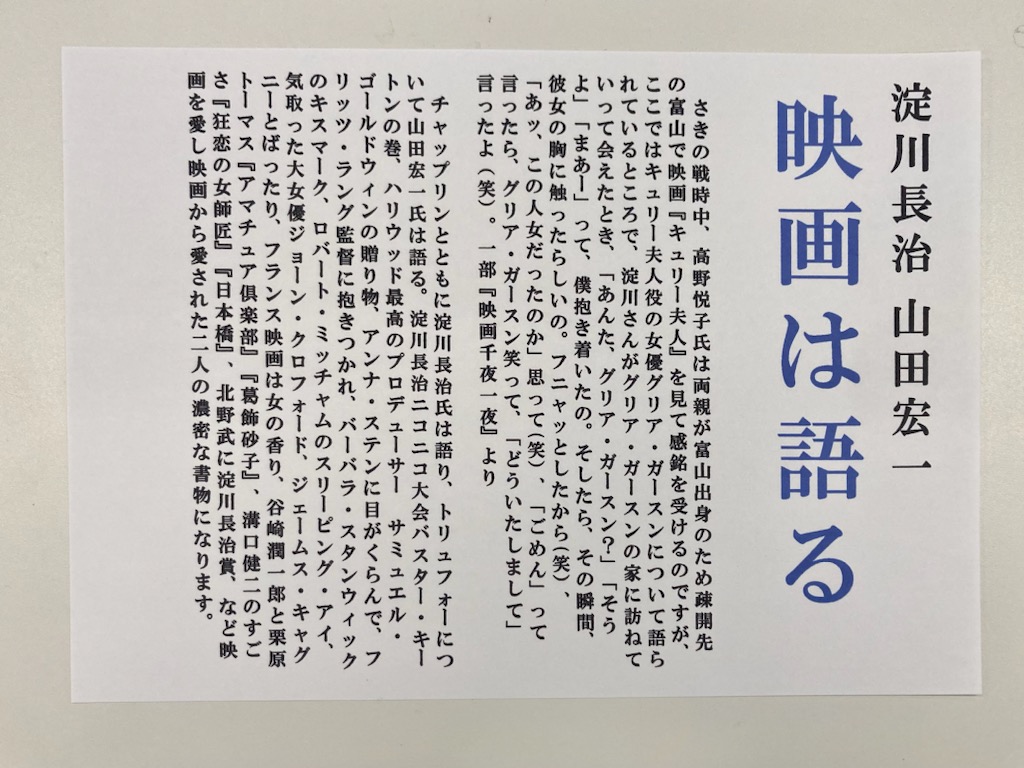 淀川長治 山田宏一
映画は語る
さきの戦時中、高野悦子氏は両親が富山出身のため疎開先
の富山で映画『キュリー夫人』を見て感銘を受けるのですが、
ここではキュリー夫人役の女優グリア・ガースンについて語ら
れているところで、淀川さんがグリア・ガースンの家に訪ねて
いって会えたとき、「あんた、グリア・ガースン？」「そう
よ」「まあー」って、僕抱き着いたの。そしたら、その瞬間、
彼女の胸に触ったらしいの。フニャッとしたから(笑)、
「あッ、この人女だったのか」思って(笑)、「ごめん」って
言ったら、グリア・ガースン笑って、「どういたしまして」
言ったよ（笑）。一部『映画千夜一夜』より
チャップリンとともに淀川長治氏は語り、トリュフォーにつ
いて山田宏一氏は語る。淀川長治ニコニコ大会バスター・キー
トンの巻、ハリウッド最高のプロデューサー サミュエル・
ゴールドウィンの贈り物、アンナ・ステンに目がくらんで、フ
リッツ・ラング監督に抱きつかれ、バーバラ・スタンウィック
のキスマーク、ロバート・ミッチャムのスリーピング・アイ、
気取った大女優ジョーン・クロフォード、ジェームス・キャグ
ニーとばったり、フランス映画は女の香り、谷崎潤一郎と栗原
トーマス『アマチュア倶楽部』『葛飾砂子』、溝口健二のすご
さ『狂恋の女師匠』『日本橋』、北野武に淀川長治賞、など映
画を愛し映画から愛された二人の濃密な書物になります。